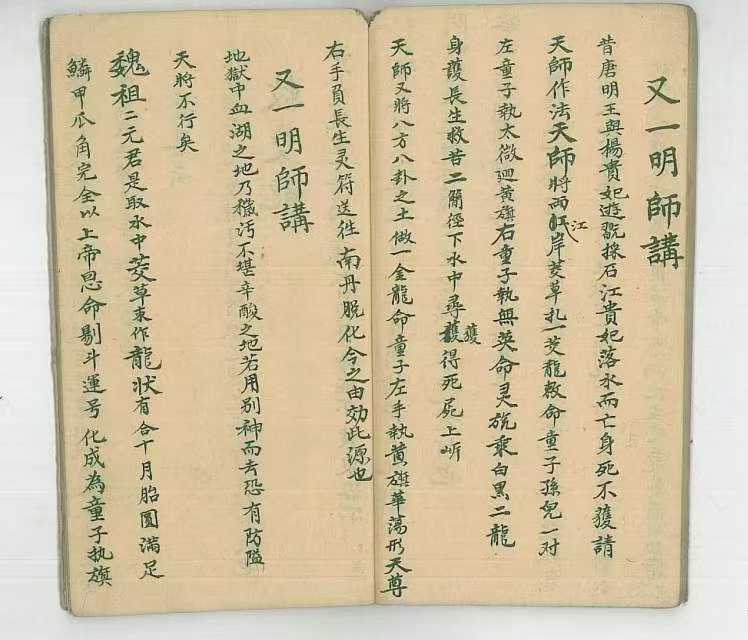 又一明師講
昔唐明王與楊貴妃遊翫採石江貴妃落水而亡身死不獲請
天師作法天師將両江岸茭草扎一茭龍敕命童子孫兒一对
左童子執太微廻黄旗右童子執無英命灵旐乘白黑二龍
身護長生救苦二簡徑下水中尋獲得死屍上岸
天師又將八方八卦之土做一金龍命童子左手執黄旗華蕩形天尊
右手員長生灵符送往南丹脱化今之由効此源也
又一明師講
地獄中血湖之地乃穢汚不堪辛酸之地若用别神而去恐有防隘
天將不行矣
魏祖二元君是取水中茭草來作龍状有合十月胎圓滿足
鱗甲瓜角完全以上帝恩命剔斗運号化成為童子执旗